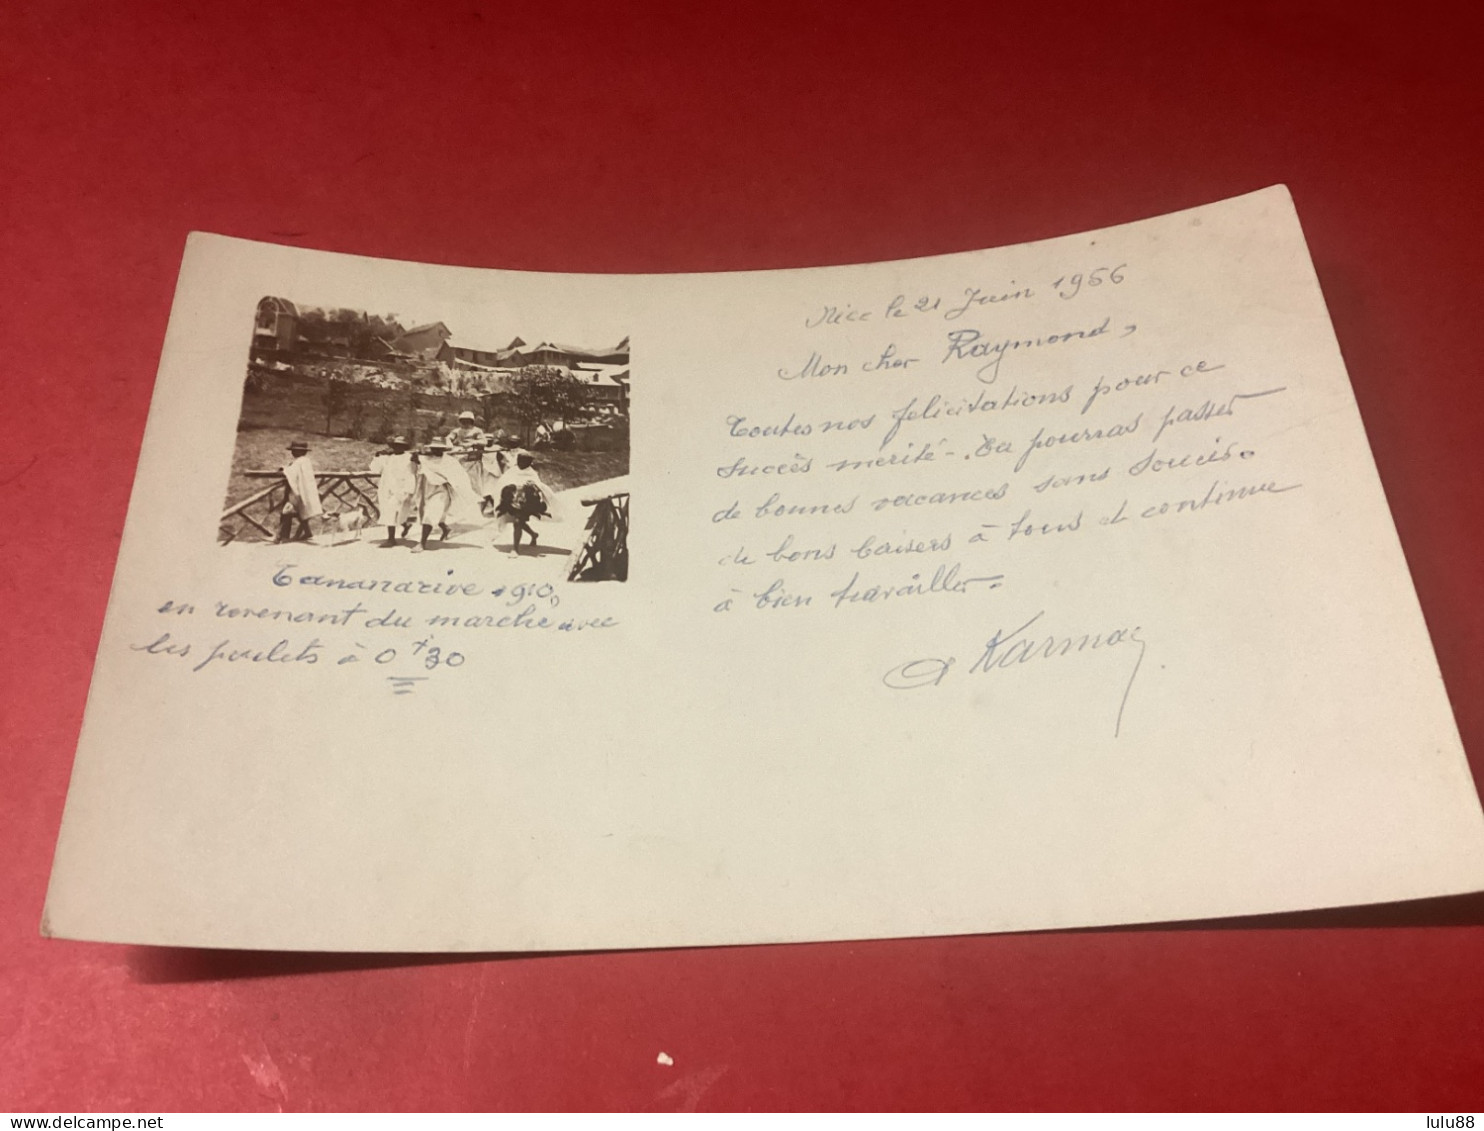 Tananarive 1910,
en revenant du marché avec
les poulets à 0f30
Nice le 21 Juin 1956
Mon cher Raymond,
Toutes nos felicitations pour ce
succès mérité - Tu pourras passer
de bonnes vacances sans soucis.
de bons baisers à tous et continue
à bien travailler =
delcampe.net
lulu88